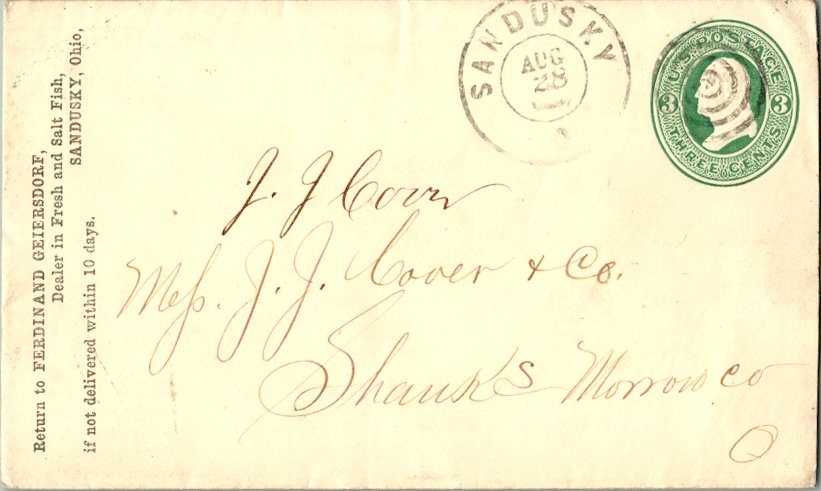 Return to FERDINAND GEIERSDORF,
Dealer in Fresh and Salt Fish,
SANDUSKY, Ohio,
if not delivered within 10 days.
SANDUSKY
AUG
28
U.S. POSTAGE
3 3
THREE CENTS
J. J. Cover
Mess. J. J. Cover & Co.
Shauks Morrow co
O